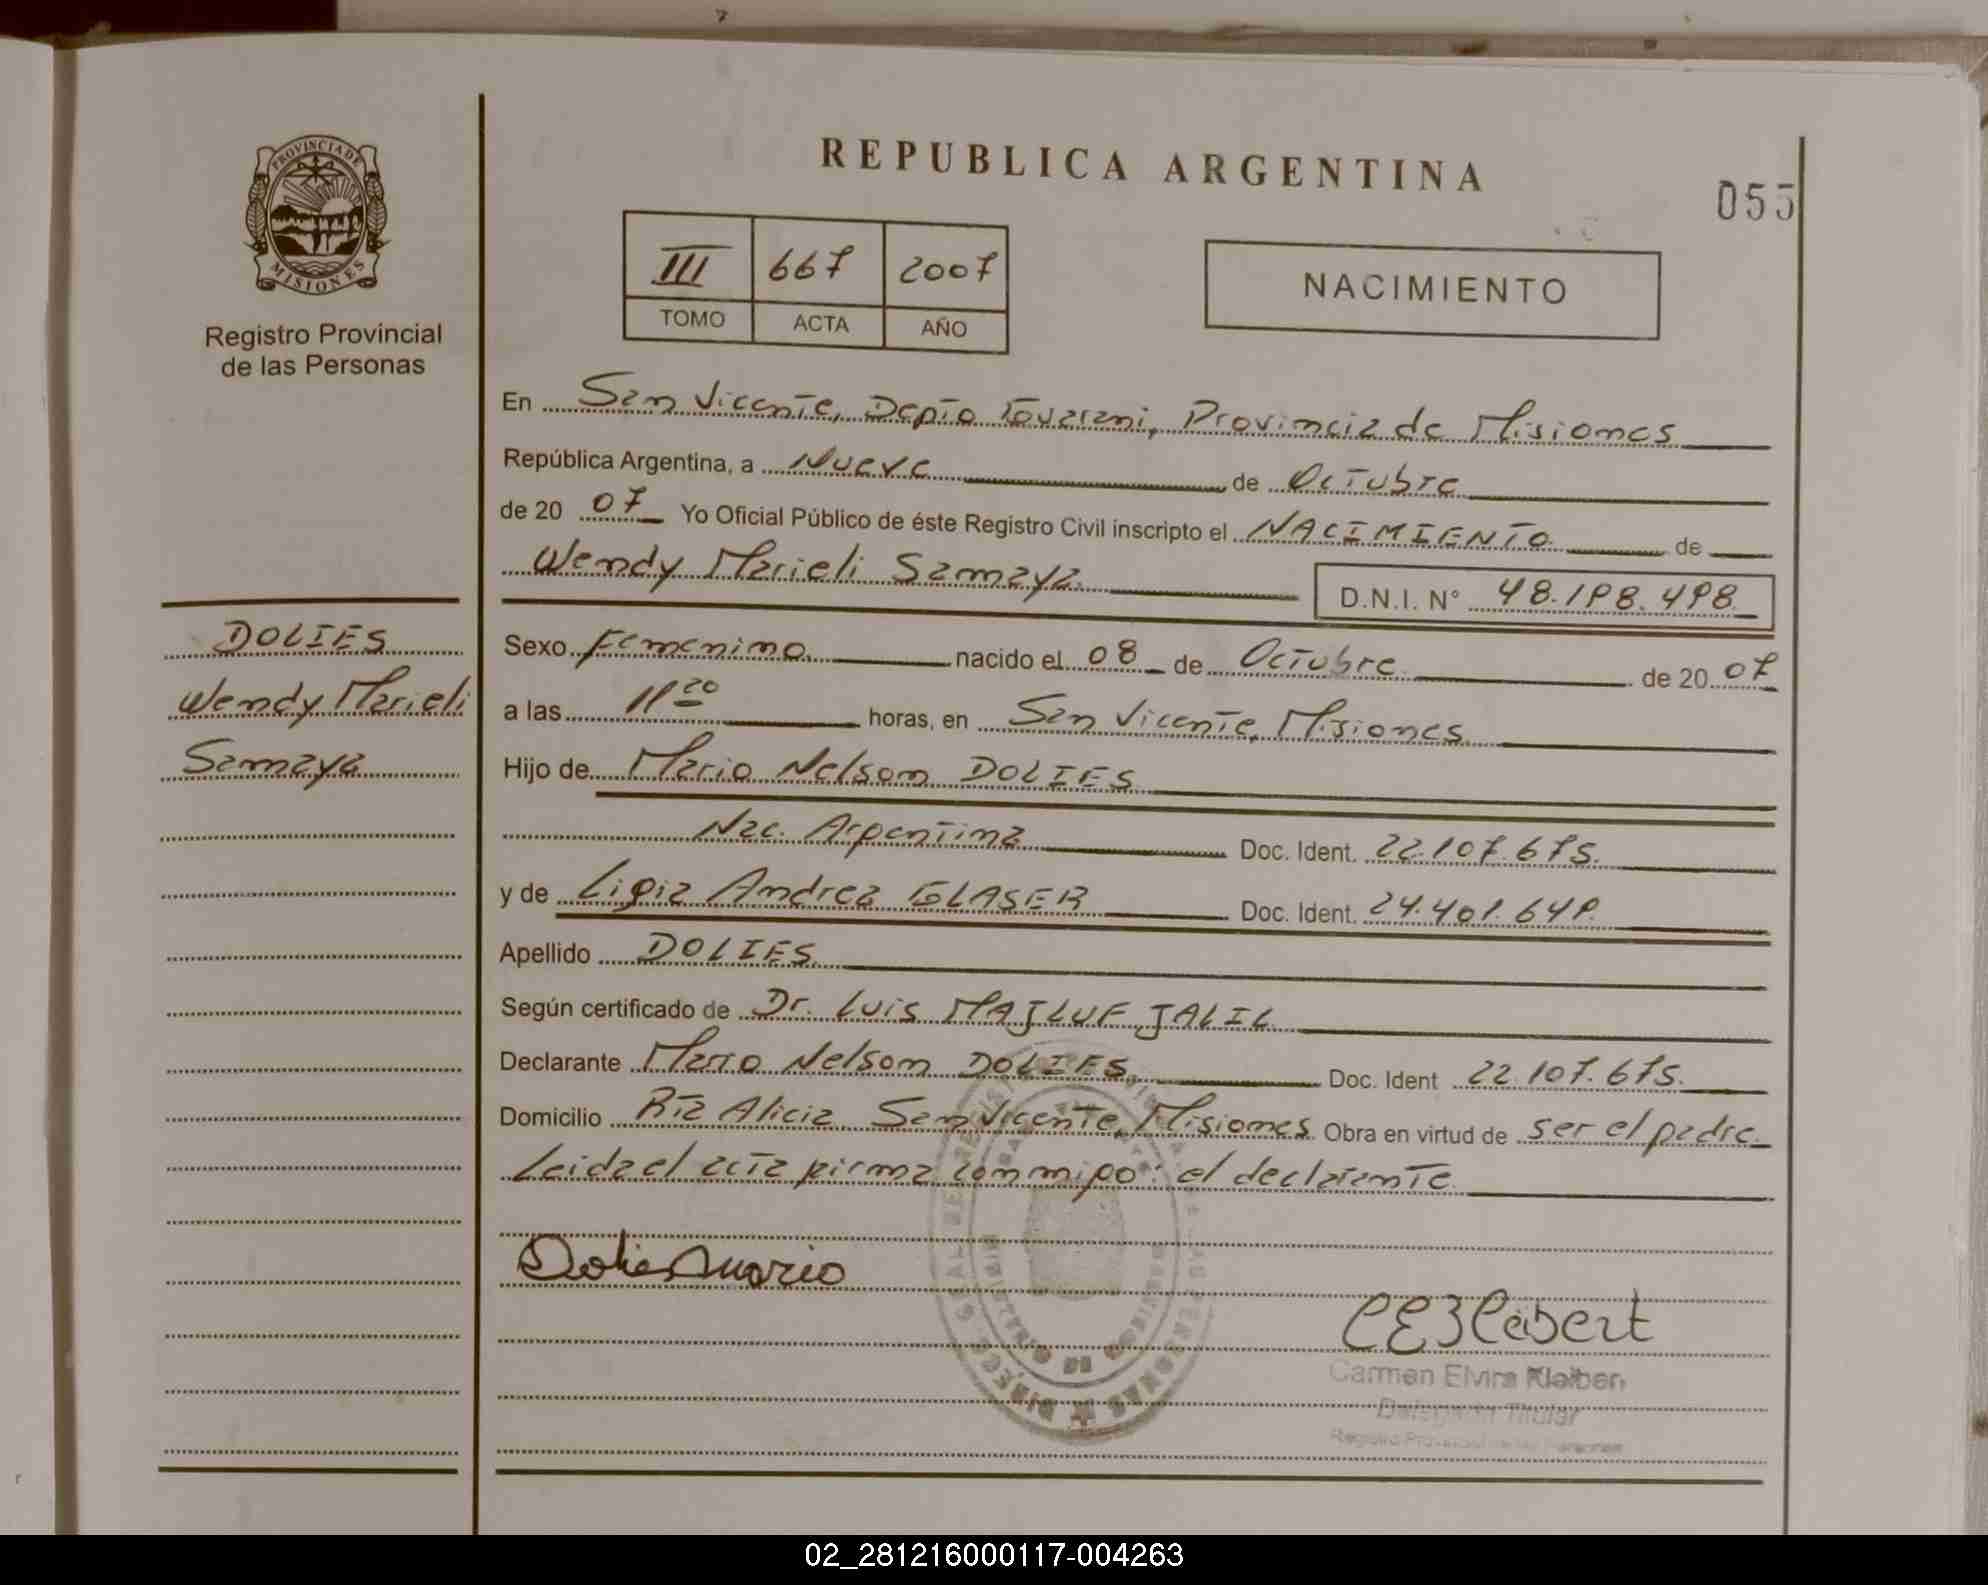 PROVINCIA DE
MISIONES
Registro Provincial
de las Personas
DOLIES
Wendy Marieli
Samaya
REPUBLICA ARGENTINA
055
III 667 2007
TOMO ACTA AÑO
NACIMIENTO
En San Vicente, Depto Guarani, Provincia de Misiones
República Argentina, a Nueve de Octubre
de 20 07 Yo Oficial Público de éste Registro Civil inscripto el NACIMIENTO de
Wendy Marieli Samaya D.N.I. N° 48.198.498
Sexo Femenino nacido el 08 de Octubre de 20 07
a las 11 20 horas, en San Vicente, Misiones
Hijo de Mario Nelson DOLIES
Nac. Argentina Doc. Ident. 22.107.675.
y de Ligia Andrea GLASER Doc. Ident. 24.401.649.
Apellido DOLIES
Según certificado de Dr. Luis MAJLUF JALIL
Declarante Mario Nelson DOLIES Doc. Ident 22.107.675.
Domicilio Rta Alicia San Vicente, Misiones Obra en virtud de ser el padre
Leida el acta firma conmigo: el declarante
Dolies Mario
Carmen Elvira Kleiber
Delegada Titular
Registro Provincial de las Personas
02_281216000117-004263